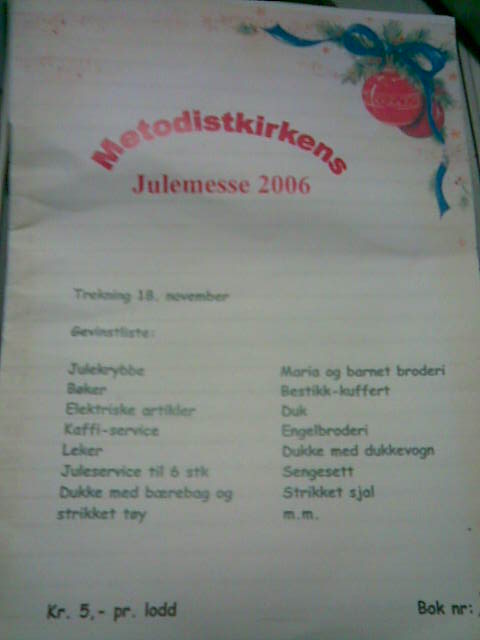 Metodistkirkens
Julemesse 2006
Trekning 18. november
Gevinstliste:
Julekrybbe
Bøker
Elektriske artikler
Kaffi-service
Leker
Juleservice til 6 stk
Dukke med bærebag og
strikket tøy
Maria og barnet broderi
Bestikk-kuffert
Duk
Engelbroderi
Dukke med dukkevogn
Sengesett
Strikket sjal
m.m.
Kr. 5,- pr. lodd
Bok nr: